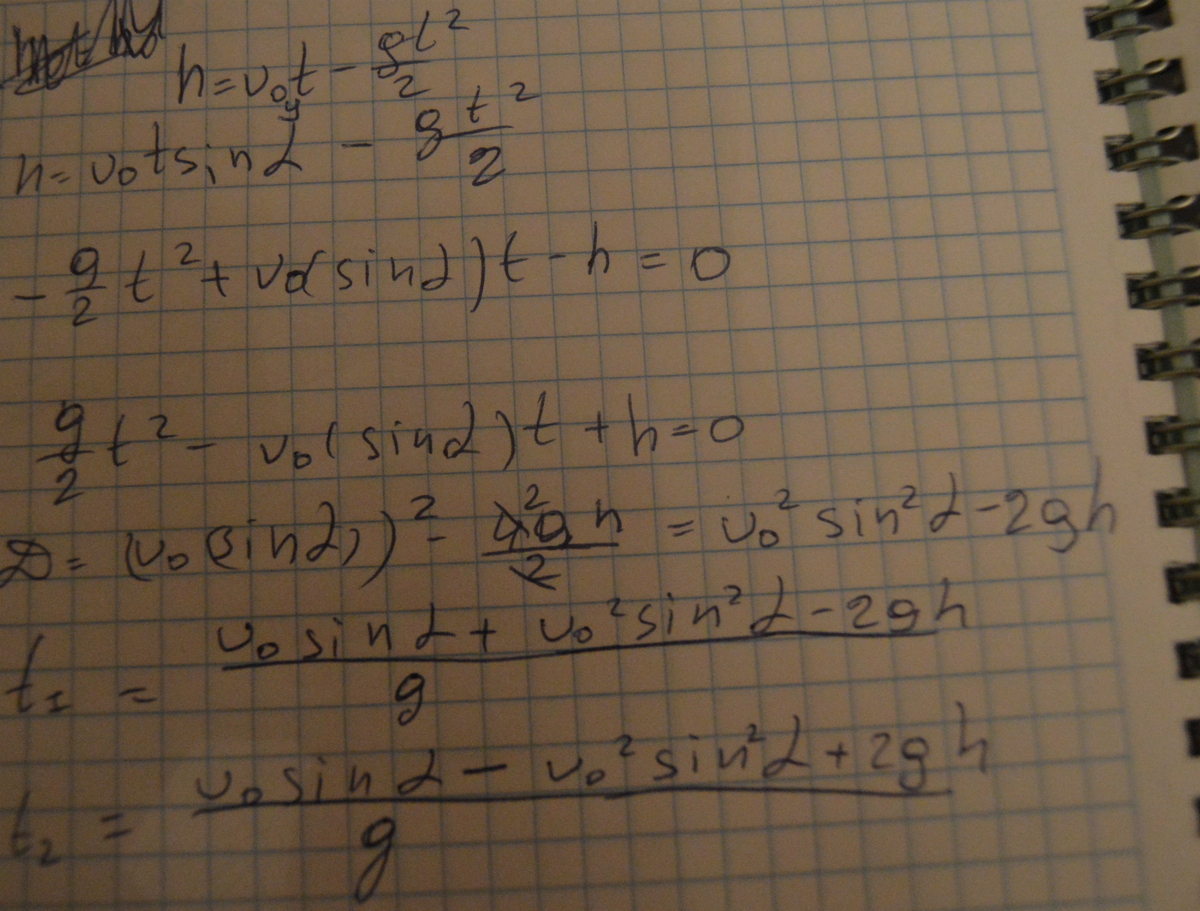 h = v₀ᵧt - gt²/2
h = v₀tsinα - gt²/2
- g/2 t² + v₀(sinα)t - h = 0
g/2 t² - v₀(sinα)t + h = 0
D = (v₀(sinα))² - 4gh/2 = v₀²sin²α - 2gh
t₁ = (v₀sinα + v₀²sin²α - 2gh)/g
t₂ = (v₀sinα - v₀²sin²α + 2gh)/g